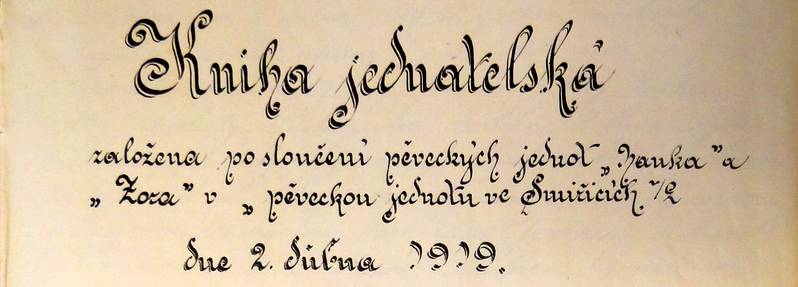 Kniha jednatelská
založena po sloučení pěveckých jednot „Hanka“ a
„Zora“ v „pěveckou jednotu ve Smiřicích n/L
dne 2. dubna 1919.